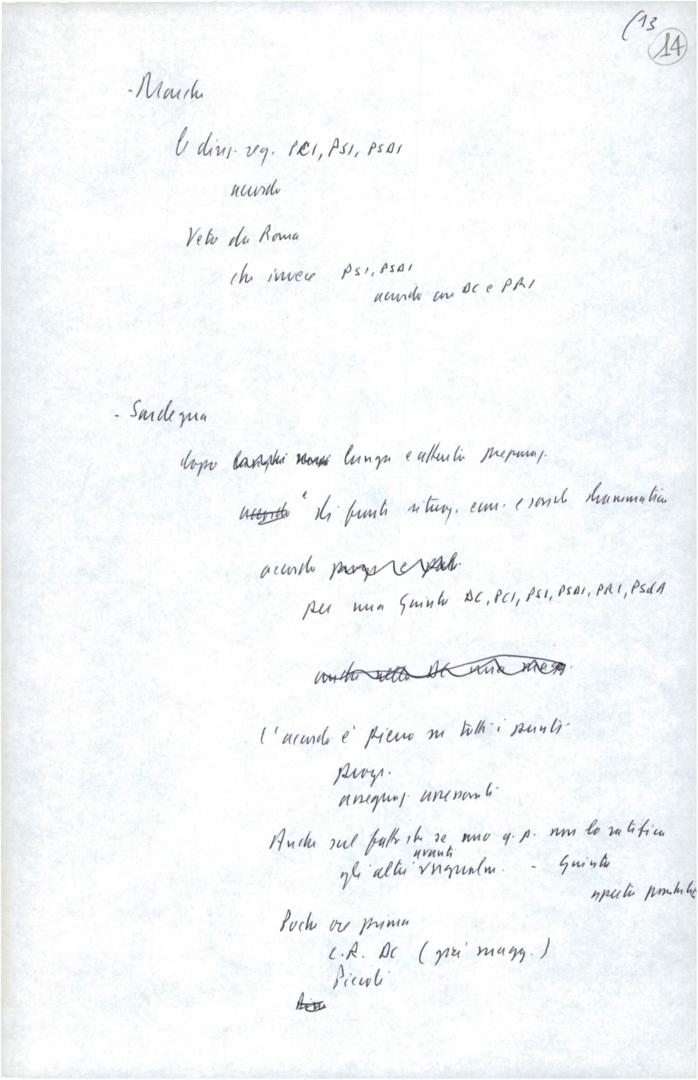 (13
14
- Marche
le direz. reg. PRI, PSI, PSDI
accordo
Veto da Roma
che invece PSI, PSDI
accordo con DC e PRI
- Sardegna
dopo lunga e attenta preparaz.
di fronte situaz. econ. e sociale drammatica
accordo
per una Giunta DC, PCI, PSI, PSDI, PRI, PSdA
anche nella DC una
L'accordo è pieno su tutti i punti
progr.
assegnaz. assessorati
Anche sul fatto che se uno q.p. non lo ratifica
gli altri avanti ugualm. - Giunta
aperta
Poche ore prima
C.R. DC (già magg.)
Piccoli